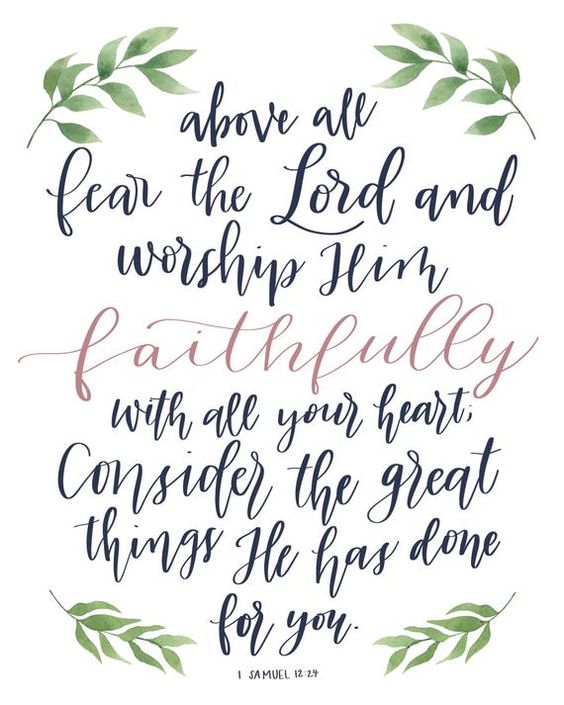 above all
fear the Lord and
worship Him
faithfully
with all your heart;
Consider the great
things He has done
for you.
1 SAMUEL 12:24